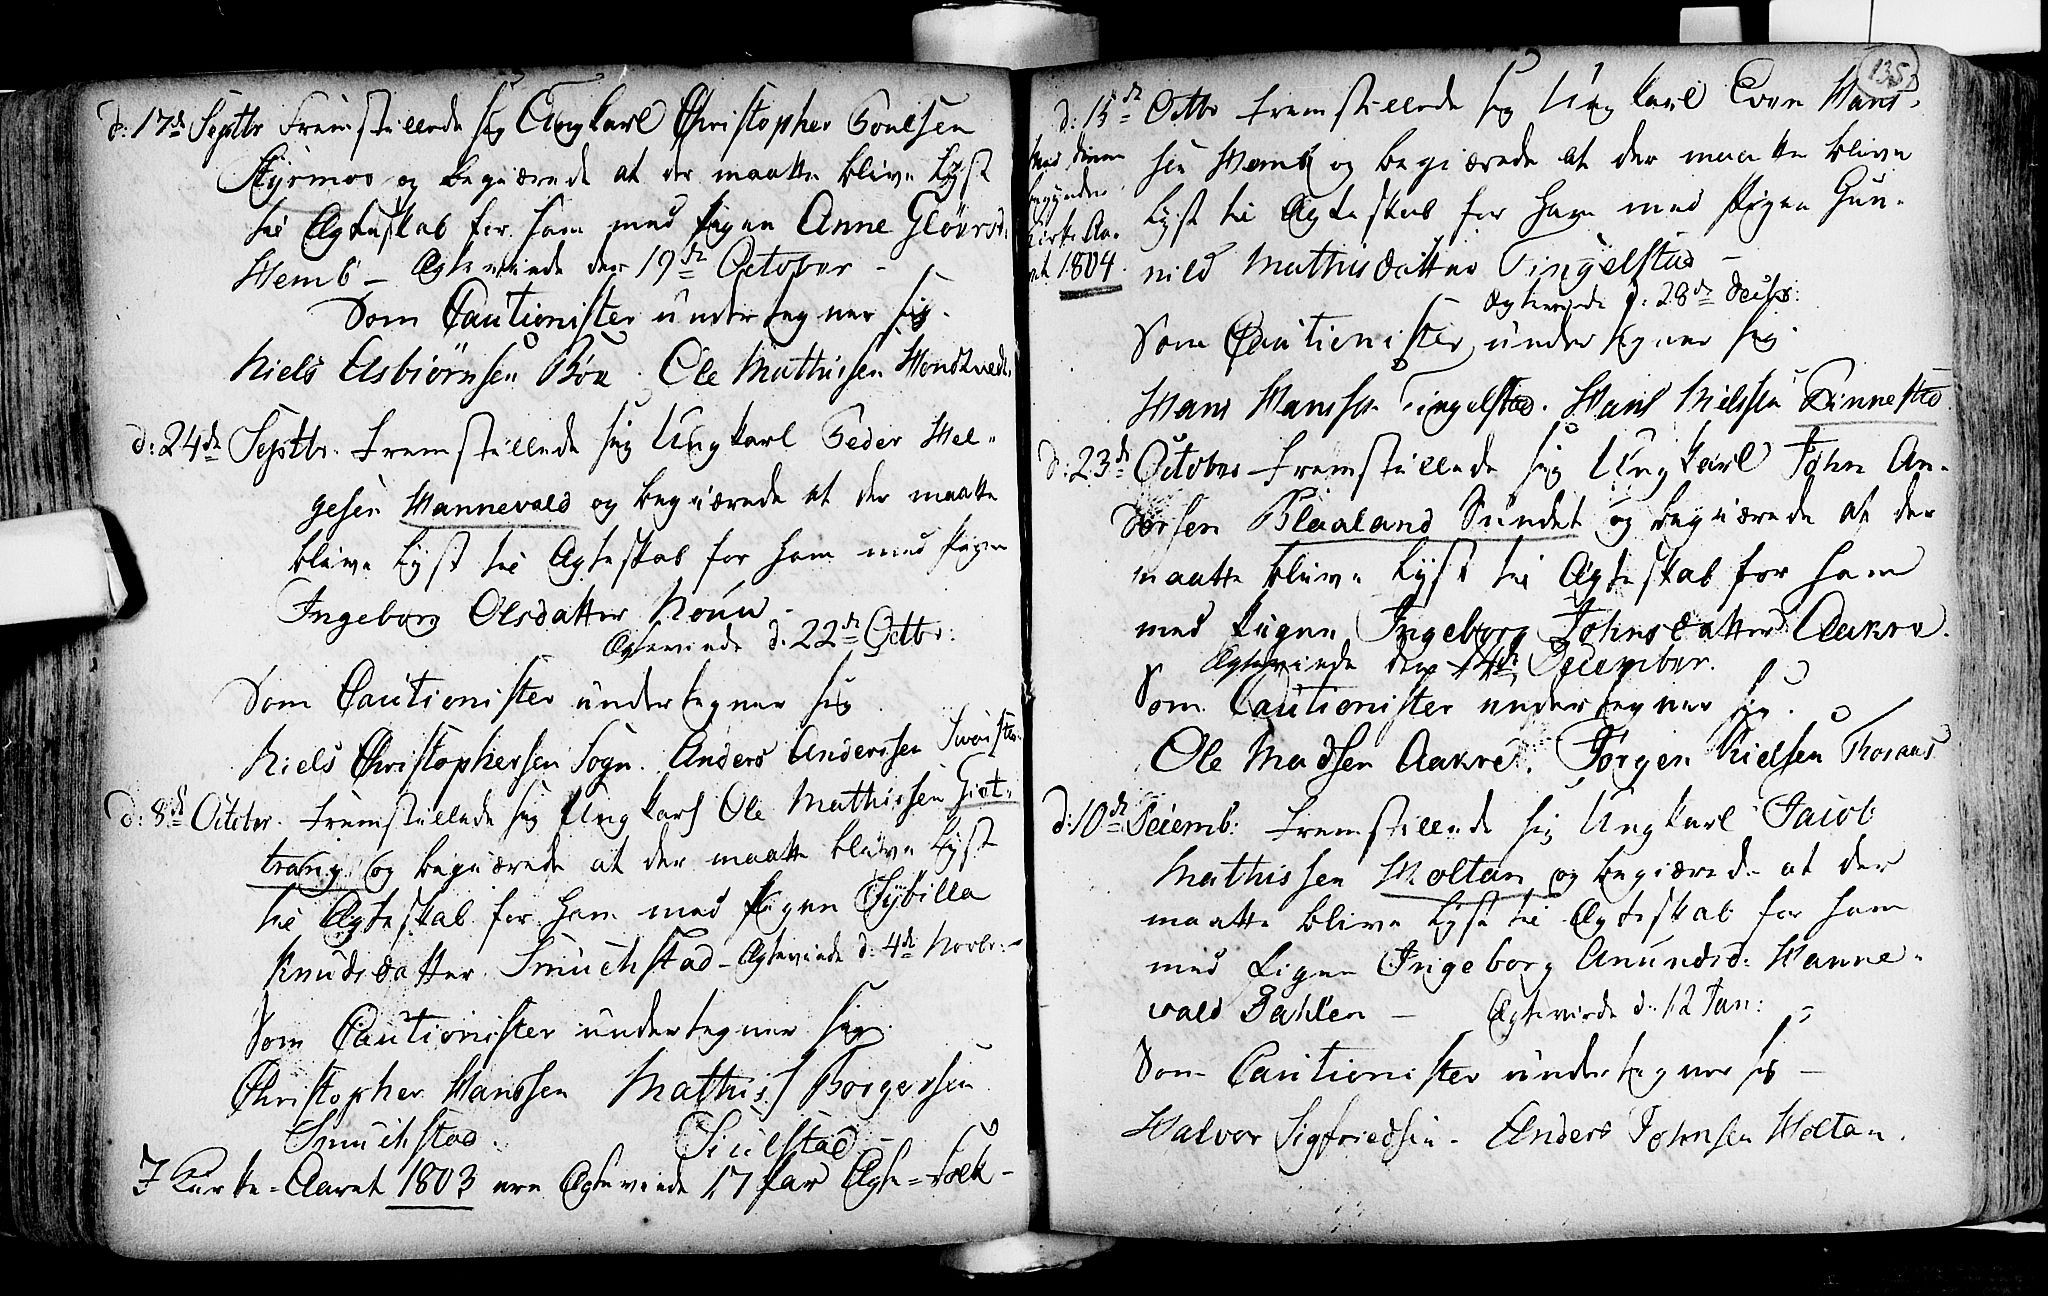 d: 17d Septbr Fremstillede sig Ungkarl Christopher Poulsen
Styrmoe og begiærede at der maatte blive Lyst
til Ægteskab for ham med Pigen Anne Gløersd:
Hemb – Ægteviede den 19de October –
Som Cautionister undertegner sig.
Niels Asbiørnsen Bøe. Ole Mathisen
d: 24de Septbr. Fremstillede sig Ungkarl Peder Hel-
gesen Hannevold og begiærede at der maatte
blive Lyst til Ægteskab for ham med Pigen
Ingeborg Olsdatter
Ægteviede d: 22de Octbr:
Som Cautionister undertegner sig
Niels Christophersen Sogn. Anders Andersen
d: 8d Octobr. Fremstillede sig Ungkarl Ole Mathissen Giet-
trang og begiærede at der maatte blive Lyst
til Ægteskab for ham med Pigen Sybilla
Knudsdatter Smuchstad – Ægteviede d: 4de Novbr: –
Som Cautionister undertegner sig.
Christopher Hanssen Mathis Borgersen
Smuchstad.
I Kirke-Aaret 1803 ere Ægteviede 17 Par Ægte-Folk –
135
d: 15de Octbr Fremstillede sig Ungkarl Even Hans-
sen Hemb og begiærede at der maatte blive
Lyst til Ægteskab for ham med Pigen Gun-
Med denne
begynder
Kirke Aa-
ret 1804.
nild Mathisdatter Tingelstad –
Ægteviede d: 28de Decbr:
Som Cautionister undertegner sig
Hans Hanssen Tingelstad. Hans Nielsen
d: 23de October Fremstillede sig Ungkarl John An-
dersen Blaaland Sundet og begiærede at der
maatte blive Lyst til Ægteskab for ham
med Pigen Ingeborg Johnsdatter Aakre.
Ægteviede den 14de December.
Som Cautionister undertegner sig.
Ole Madsen Aakre. Jørgen Nielsen
d: 10de Decemb: Fremstillede sig Ungkarl Jacob
Mathissen Moltan og begiærede at der
maatte blive Lyst til Ægteskab for ham
med Pigen Ingeborg Anundsd: Hanne-
vold Dahlen – Ægteviede d: 12 Jan:
Som Cautionister undertegner sig –
Halvor Sigfriedsen – Anders Johnsen Holtan.